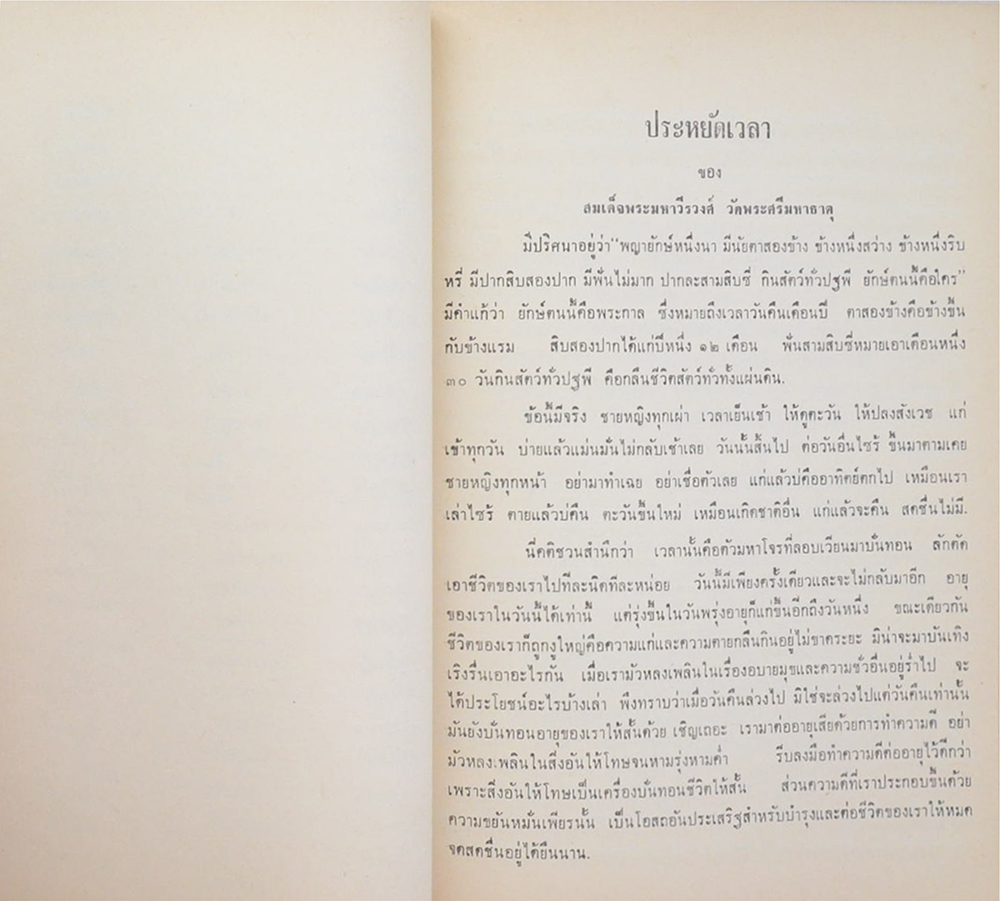 ประหยัดเวลา
ของ
สมเด็จพระมหาวีรวงศ์ วัดพระศรีมหาธาตุ
มีปริศนาอยู่ว่า "พญายักษ์หนึ่งนา มีนัยตาสองข้าง ข้างหนึ่งสว่าง ข้างหนึ่งริบ
หรี่ มีปากสิบสองปาก มีฟันไม่มาก ปากละสามสิบซี่ กินสัตว์ทั่วปฐพี ยักษ์ตนนี้คือใคร"
มีคำแก้ว่า ยักษ์ตนนี้คือพระกาล ซึ่งหมายถึงเวลาวันคืนเดือนปี ตาสองข้างคือข้างขึ้น
กับข้างแรม สิบสองปากได้แก่ปีหนึ่ง ๑๒ เดือน ฟันสามสิบซี่หมายเอาเดือนหนึ่ง
๓๐ วันกินสัตว์ทั่วปฐพี คือกลืนชีวิตสัตว์ทั่วทั้งแผ่นดิน.
ข้อนี้มีจริง ชายหญิงทุกเผ่า เวลาเย็นเช้า ให้ดูตะวัน ให้ปลงสังเวช แก่
เข้าทุกวัน บ่ายแล้วแม่นมั่นไม่กลับเช้าเลย วันนั้นสิ้นไป ต่อวันอื่นไซร้ ขึ้นมาตามเคย
ชายหญิงทุกหน้า อย่ามาทำเฉย อย่าเชื่อตัวเลย แก่แล้วบ่คืออาทิตย์ตกไป เหมือนเรา
เล่าไซร้ ตายแล้วบ่คืน ตะวันขึ้นใหม่ เหมือนเกิดชาติอื่น แก่แล้วจะคืน สดชื่นไม่มี.
นี่คติชวนสำนึกว่า เวลานั้นคือตัวมหาโจรที่ลอบเวียนมาบั่นทอน ลักตัด
เอาชีวิตของเราไปทีละนิดทีละหน่อย วันนี้มีเพียงครั้งเดียวและจะไม่กลับมาอีก อายุ
ของเราในวันนี้ได้เท่านี้ แต่รุ่งขึ้นในวันพรุ่งอายุก็แก่ขึ้นอีกถึงวันหนึ่ง ขณะเดียวกัน
ชีวิตของเราก็ถูกงูใหญ่คือความแก่และความตายกลืนกินอยู่ไม่ขาดระยะ มิน่าจะมาบันเทิง
เริงรื่นเอาอะไรกัน เมื่อเรามัวหลงเพลินในเรื่องอบายมุขและความชั่วอื่นอยู่ร่ำไป จะ
ได้ประโยชน์อะไรบ้างเล่า พึงทราบว่าเมื่อวันคืนล่วงไป มิใช่จะล่วงไปแต่วันคืนเท่านั้น
มันยังบั่นทอนอายุของเราให้สั้นด้วย เชิญเถอะ เรามาต่ออายุเสียด้วยการทำความดี อย่า
มัวหลงเพลินในสิ่งอันให้โทษจนหามรุ่งหามค่ำ รีบลงมือทำความดีต่ออายุไว้ดีกว่า
เพราะสิ่งอันให้โทษเป็นเครื่องบั่นทอนชีวิตให้สั้น ส่วนความดีที่เราประกอบขึ้นด้วย
ความขยันหมั่นเพียรนั้น เป็นโอสถอันประเสริฐสำหรับบำรุงและต่อชีวิตของเราให้หมด
จดสดชื่นอยู่ได้ยืนนาน.